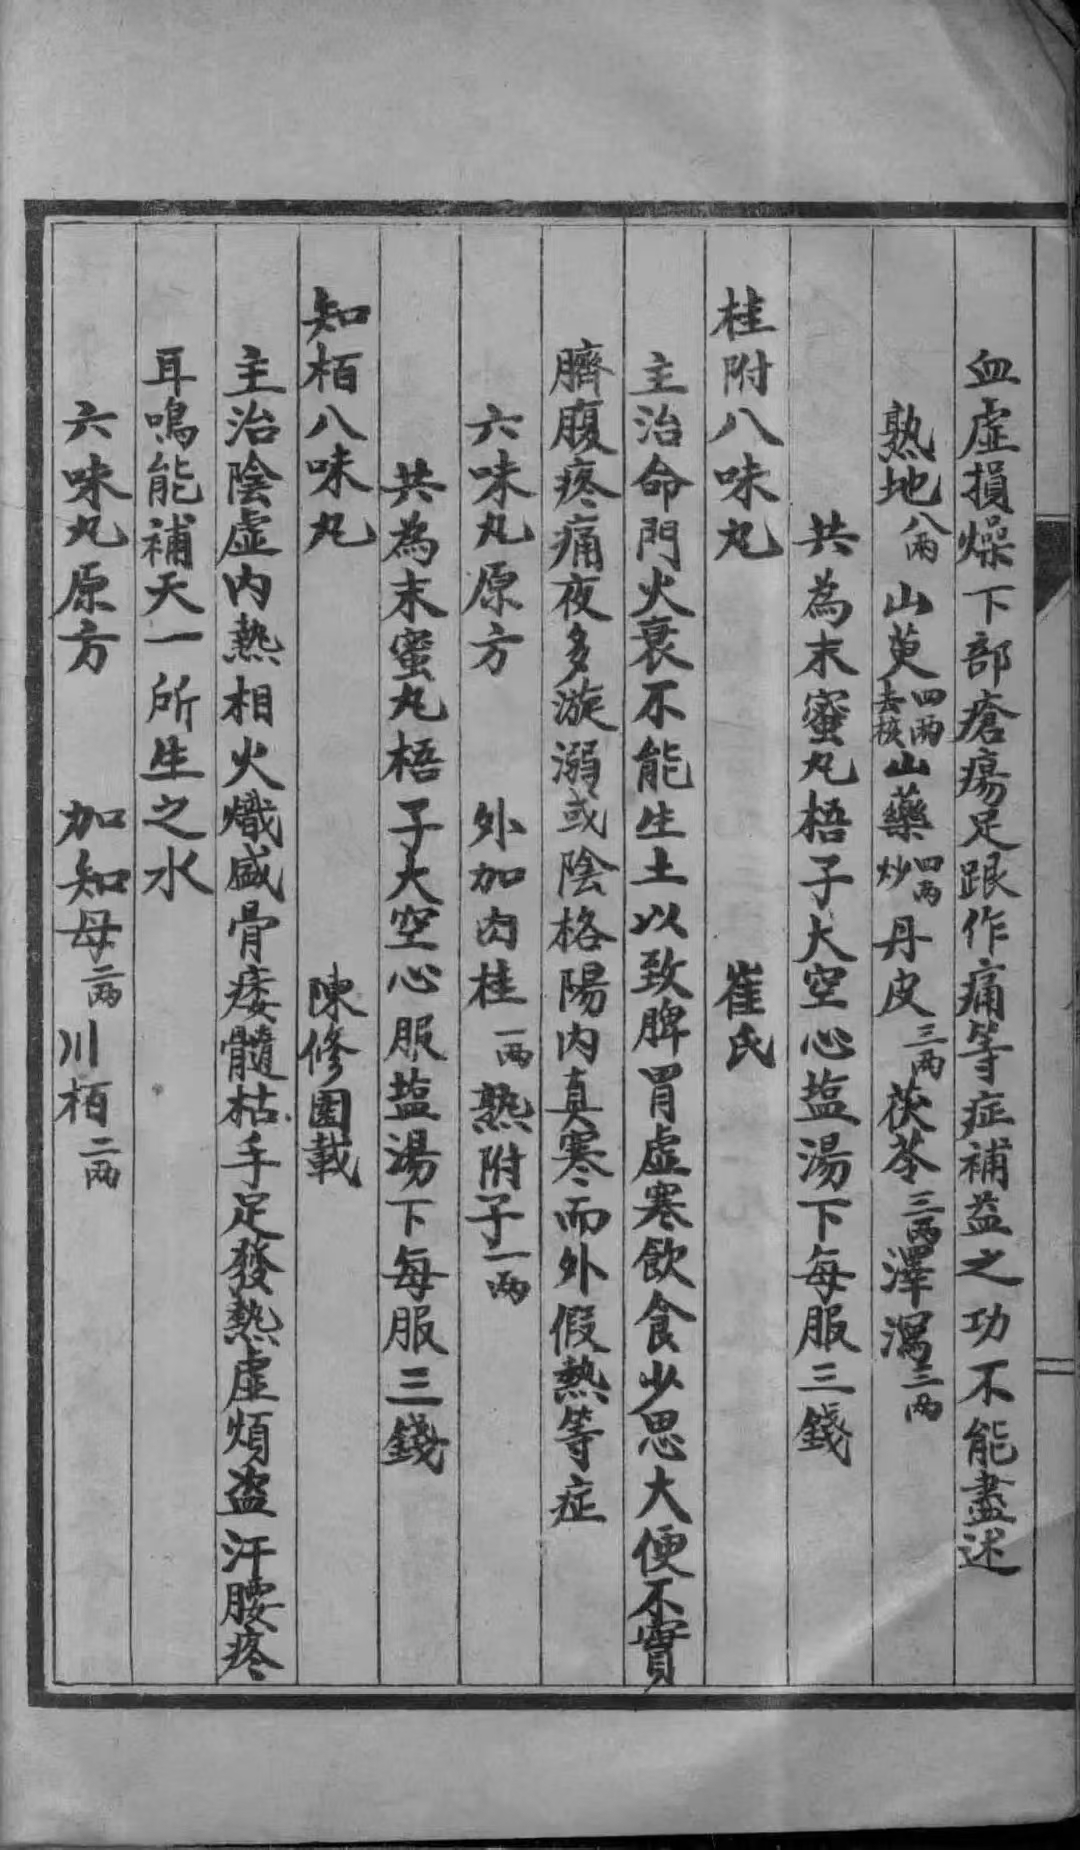 血虛損燥下部瘡瘍足跟作痛等症補益之功不能盡述
熟地八兩山萸四兩去核山藥四兩炒丹皮三兩茯苓三兩澤瀉三兩
共為末蜜丸梧子大空心塩湯下每服三錢
桂附八味丸 崔氏
主治命門火衰不能生土以致脾胃虛寒飲食少思大便不實
臍腹疼痛夜多漩溺或陰格陽內真寒而外假熱等症
六味丸原方 外加肉桂一兩熟附子一兩
共為末蜜丸梧子大空心服塩湯下每服三錢
知栢八味丸 陳修園載
主治陰虛內熱相火熾盛骨痿髓枯手足發熱虛煩盜汗腰疼
耳鳴能補天一所生之水
六味丸原方 加知母二兩川栢二兩